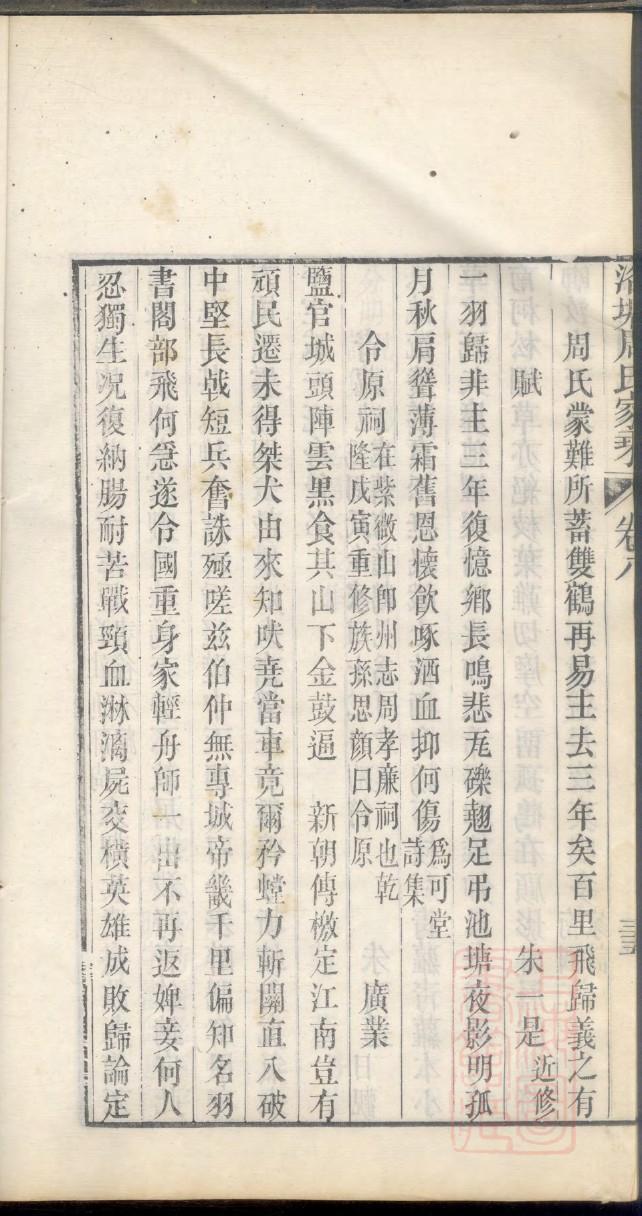 洛塘周氏家乘 卷八 三五
周氏蒙難所蓄雙鶴再易主去三年矣百里飛歸義之有
賦 朱一是近修
一羽歸非主三年復憶鄉長鳴悲瓦礫翹足弔池塘夜影明孤
月秋肩聳薄霜舊恩懷飲啄洒血抑何傷爲可堂詩集
令原祠在紫微山卽州志周孝廉祠也乾隆戊寅重修族孫思顔曰令原 朱廣業
鹽官城頭陣雲黑食其山下金鼓逼 新朝傳檄定江南豈有
頑民遷未得桀犬由來知吠堯當車竟爾矜螳力斬關直入破
中堅長戟短兵奮誅殛嗟兹伯仲無專城帝畿千里偏知名羽
書閣部飛何急遂令國重身家輕舟師一出不再返婢妾何人
忍獨生况復納腸耐苦戰頸血淋漓屍交橫英雄成敗歸論定